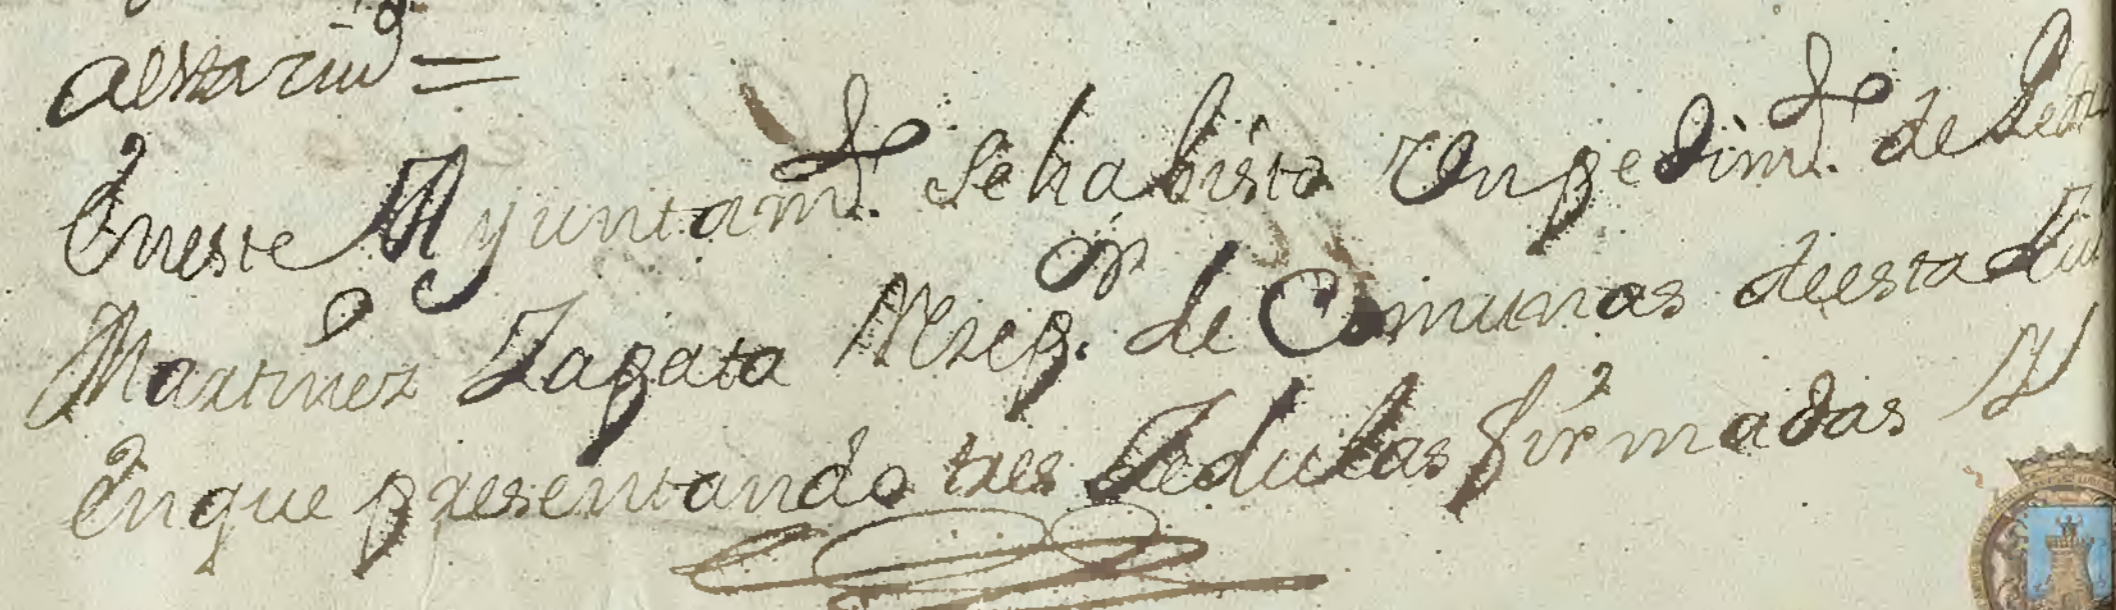 aestaciud =
Eneste Ayuntamto. seha bisto Un pedimto. de
Martinez Zapata Recepor. de Comunas deesta
Enque presentando tres Zedulas firmadas